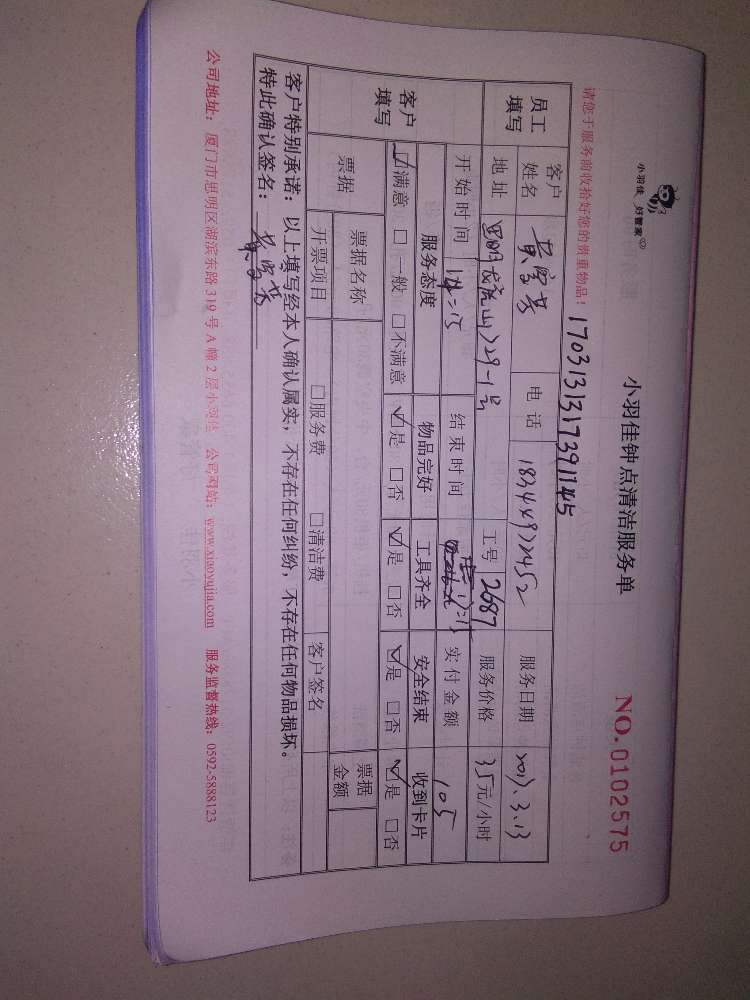 小羽佳 好管家
小羽佳钟点清洁服务单
NO.0102575
请您于服务前收拾好您的贵重物品！
17031313173911145
员工填写 客户姓名 电话 服务日期 2017.3.13
地址 工号 2687 服务价格 35元/小时
开始时间 14:15 结束时间 17:15 实付金额 105
客户填写 服务态度 物品完好 工具齐全 安全结束 收到卡片
☑满意 □一般 □不满意 ☑是 □否 ☑是 □否 ☑是 □否 ☑是 □否
票据 票据名称 票据金额
开票项目 □服务费 □清洁费 客户签名
客户特别承诺：以上填写经本人确认属实，不存在任何纠纷，不存在任何物品损坏。
特此确认签名：
公司地址：厦门市思明区湖滨东路319号A幢2层小羽佳 公司网站：www.xiaoyujia.com 服务监督热线：0592-5888123